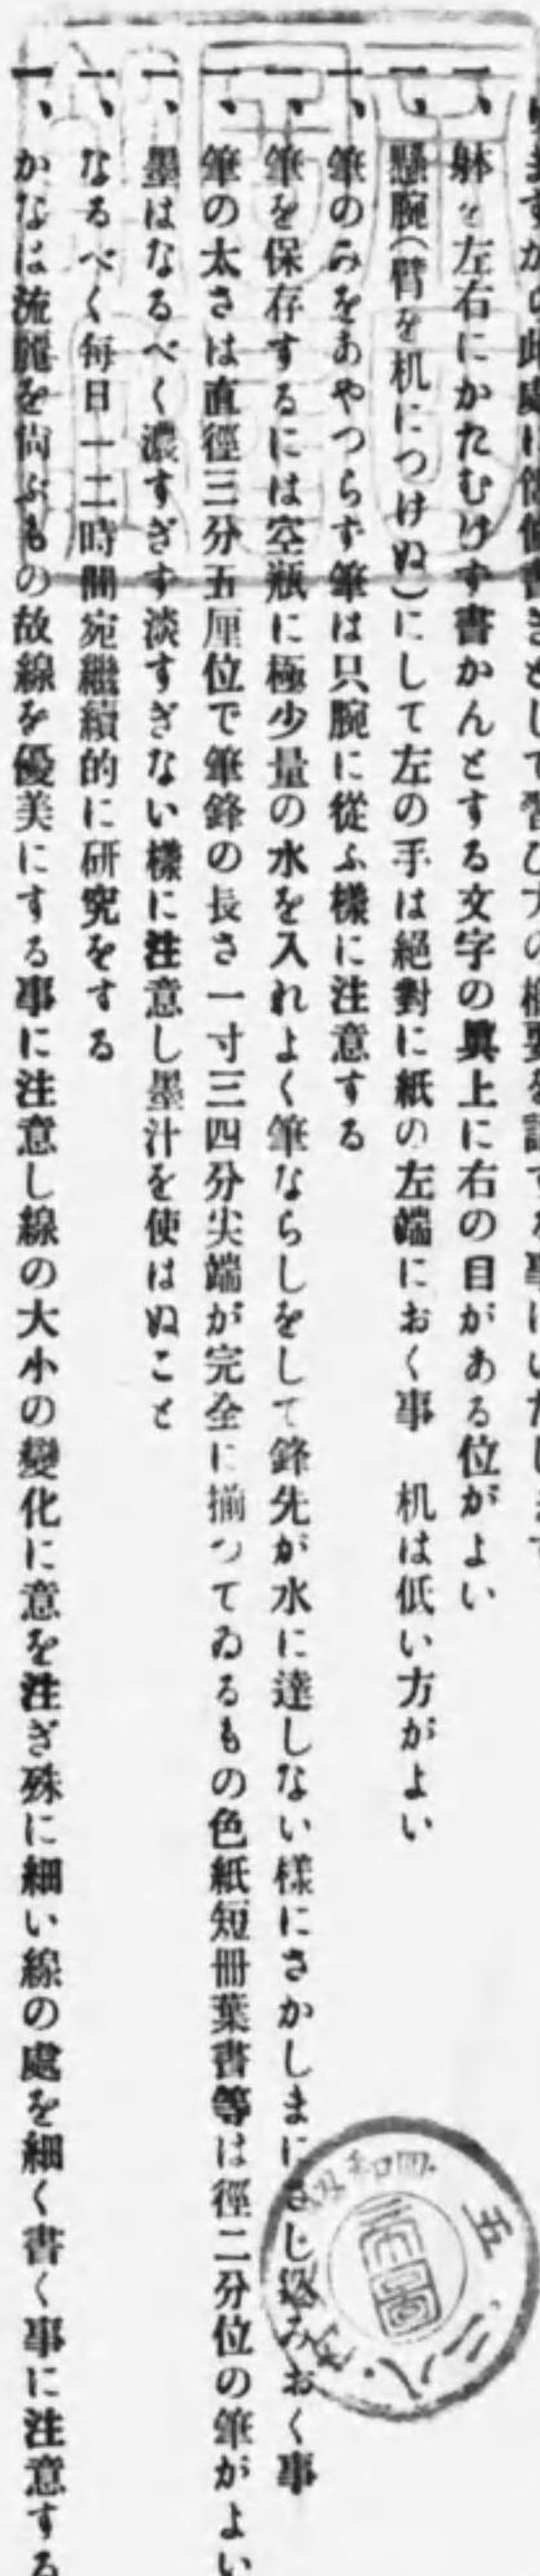 一、躰を左右にかたむけず書かんとする文字の眞上に右の目がある位がよい
一、懸腕(臂を机につけぬ)にして左の手は絕對に紙の左端におく事　机は低い方がよい
一、筆のみをあやつらず筆は只腕に從ふ樣に注意する
一、筆を保存するには空瓶に極少量の水を入れよく筆ならしをして鋒先が水に達しない樣にさかしまにさし込みおく事
一、筆の太さは直徑三分五厘位で筆鋒の長さ一寸三四分尖端が完全に揃つてゐるもの色紙短冊葉書等は徑二分位の筆がよい
一、墨はなるべく濃すぎず淡すぎない樣に注意し墨汁を使はぬこと
一、なるべく每日一二時間宛繼續的に硏究をする
一、かなは流麗を尙ぶもの故線を優美にする事に注意し線の大小の變化に意を注ぎ殊に細い線の處を細く書く事に注意する